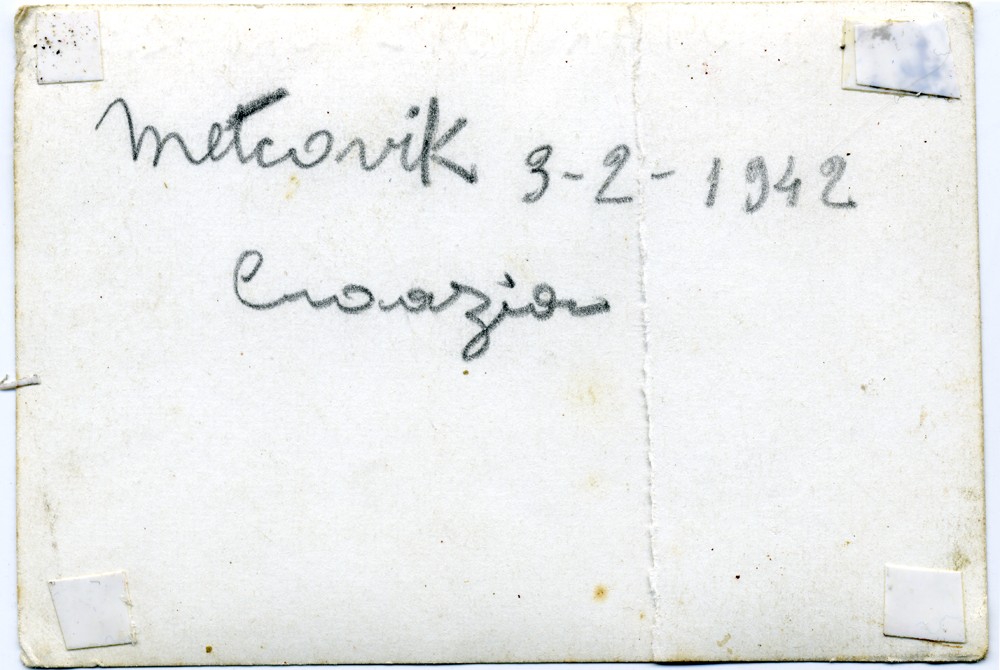 Metcovik 3-2-1942
Croazia